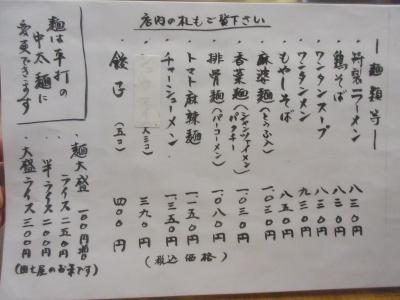 店内の札もご覧下さい
ー麺類等ー
特製ラーメン 八三〇円
鶏そば 八三〇円
ワンタンスープ 八三〇円
ワンタンメン 九三〇円
もやしそば 八五〇円
麻婆麺(とうふ入) 一、〇三〇円
香菜麺(シャンツァイメン パクチー) 一、〇三〇円
排骨麺(パーコーメン) 一、〇八〇円
トマト麻辣麺 一、一五〇円
チャーシューメン 一、三五〇円
三九〇円
餃子(五コ) 四〇〇円
(税込価格)
麺は平打の
中太麺に
変更できます
麺大盛 一〇〇円増
ライス 二五〇円
半ライス 二〇〇円
大盛ライス 三〇〇円